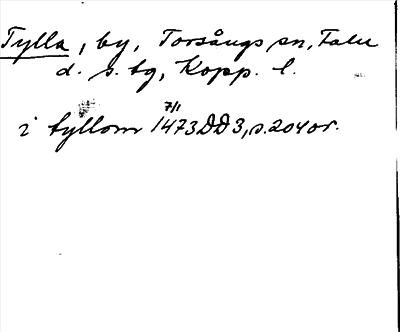 Tylla, by, Torsångs sn, Falu
d. s. tg, Kopp. l.
7/1
i tyllom 1473 DD3, s. 204 or.